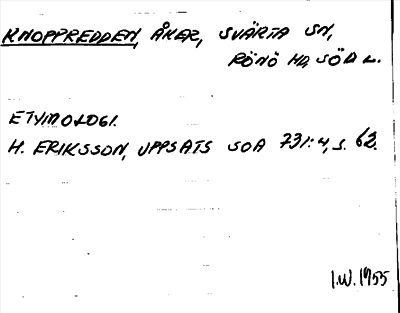 KNOPPREDDEN, ÅKER, SVÄRTA SN,
RÖNÖ HD, SÖD L.
ETYMOLOGI.
H. ERIKSSON, UPPSATS SOA 731:4, S. 62.
I.W. 1955